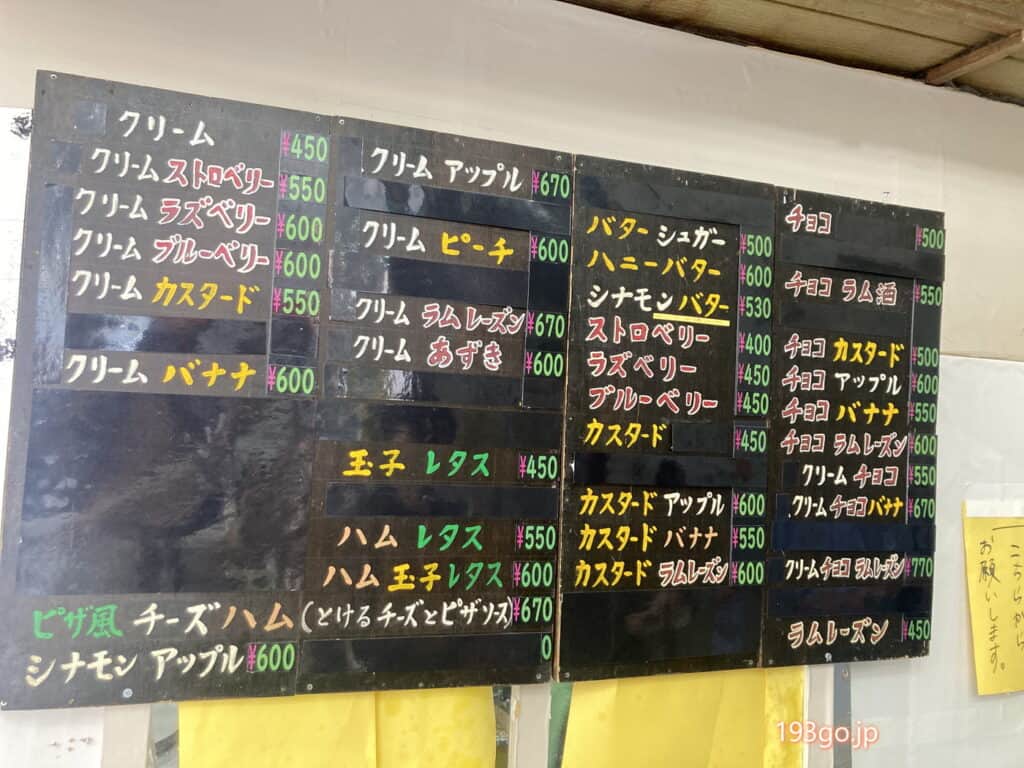 クリーム ¥450
クリーム ストロベリー ¥550
クリーム ラズベリー ¥600
クリーム ブルーベリー ¥600
クリーム カスタード ¥550
クリーム バナナ ¥600
クリーム アップル ¥670
クリーム ピーチ ¥600
クリーム ラムレーズン ¥670
クリーム あずき ¥600
玉子 レタス ¥450
ハム レタス ¥550
ハム 玉子 レタス ¥600
ピザ風 チーズハム (とけるチーズとピザソース) ¥670
シナモン アップル ¥600
0
バター シュガー ¥500
ハニーバター ¥600
シナモンバター ¥530
ストロベリー ¥400
ラズベリー ¥450
ブルーベリー ¥450
カスタード ¥450
カスタード アップル ¥600
カスタード バナナ ¥550
カスタード ラムレーズン ¥600
チョコ ¥500
チョコ ラム酒 ¥550
チョコ カスタード ¥500
チョコ アップル ¥600
チョコ バナナ ¥550
チョコ ラムレーズン ¥600
クリーム チョコ ¥550
クリームチョコバナナ ¥670
クリームチョコ ラムレーズン ¥770
ラムレーズン ¥450
こちらから
お願いします。
193go.jp